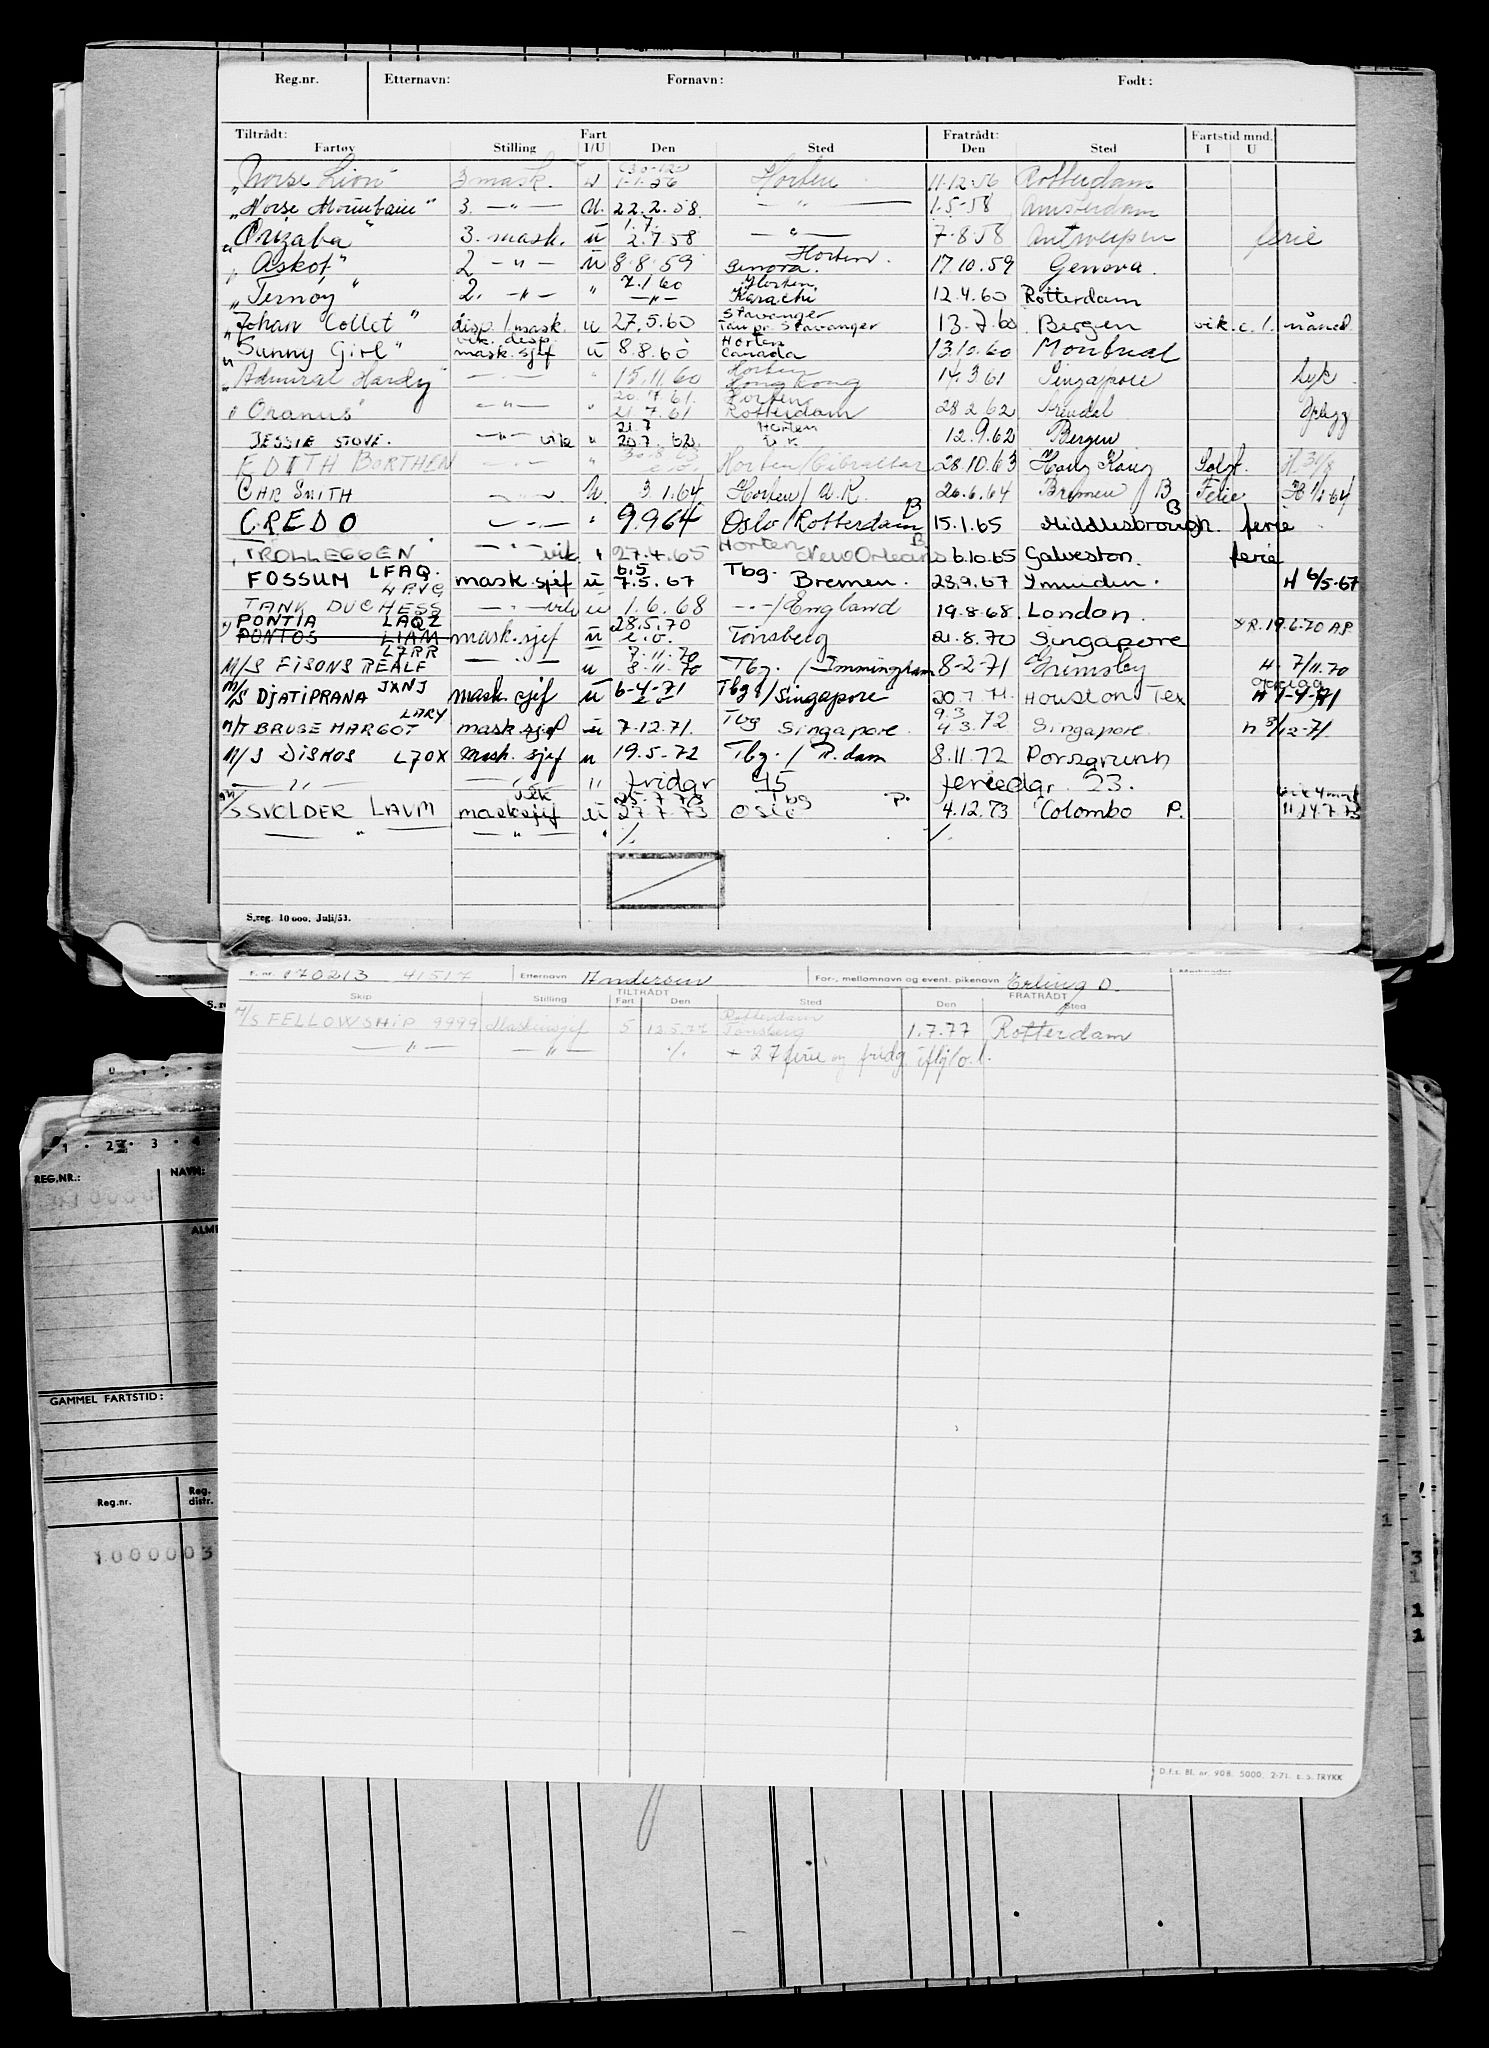 Reg.nr. Etternavn: Fornavn: Født:
Tiltrådt: Fart Fratrådt: Fartstid mnd.
Fartøy Stilling I/U Den Sted Den Sted I U
„Norse Lion" 3 mask. u 1.1.56 Horten 11.12.56 Rotterdam
„Norse Mountain" 3. —"— U. 22.2.58. —"— 1.5-58 Amsterdam
1.7.
„Orizaba" 3. mask. u 2.7.58 —"— 7-8.58 Antwerpen ferie
Horten.
„Askot" 2 —"— u 8.8.59 Genova. 17.10.59 Genova.
7.1.60 Horten,
„Ternøy" 2. —"— " —"— Karachi 12.4.60 Rotterdam
Stavanger
„Johan Collet" disp. 1 mask. u 27.5.60 Tau pr. Stavanger 13.7.60 Bergen vik. c. 1. måned.
vik. disp. Horten
„Sunny Girl" mask. sjef u 8.8.60 Canada 13.10.60 Montreal
Horten
„Admiral Hardy" —"— " 15.11.60 Hong Kong 14.3.61 Singapore Syk.
20.7.61. Horten
„Oranus" —"— " 21.7.61 Rotterdam 28.2.62 Arendal Opplegg
21.7 Horten
JESSIE STOVE. —"— vik " 20.7.62. U.K 12.9.62 Bergen
30.8.63
EDITH BORTHEN —"— " e.o. Horten/Gibraltar 28.10.63 Hong Kong Solgt. H. 30/8
CHR SMITH —"— U. 3.1.64 Horten/U.K. 26.6.64 Bremen B Ferie H 1/1 64
CREDO —"— " 9.9.64 Oslo/Rotterdam B 15.1.65 Middlesbrough. B ferie
TROLLEGGEN —"— vik " 27.4.65 Horten New Orleans B 6.10.65 Galveston. ferie
6.5
FOSSUM LFAQ. mask. sjef u 7.5.67 Tbg. Bremen. 23.9.67 Ymuiden. H 6/5-67
TANK DUCHESS —"— vik u 1.6.68 —"—/England 19.8.68. London.
PONTIA LAQZ 28.5.70
PONTOS LIAM mask. sjef u e.o. Tønsberg 21.8.70 Singapore R. 19.6.70 AP.
L7RR 7.11.70
M/S FISONS REALF —"— u 8.11.70 Tbg. / Immingham 8-2-71 Grimsby H. 7/11.70
M/S DJATIPRANA JXNJ mask. sjef u 6-4-71 Tbg./Singapore 20.7.71. Houston Tex H 1-4-71
LARY 9.3
M/T BRUSE MARGOT mask. sjef u 7.12.71. Tbg Singapore. 4.3.72 Singapore. H 3/12-71.
M/S DISKOS L7OX Mask. sjef u 19.5-72 Tbg. / R.dam 8.11.72 Porsgrunn
—"— —"— " fridgr 45 feriedgr. 23.
vik 25.7.73 Tbg P. vik 4 mnd
M/S SVOLDER LAVM masksjef u 27.7.73 Oslo 4.12.73 Colombo P. H 24.7.73
—"— —"— " ·/. ·/.
S.reg. 10 000. Juli/53.
F. nr. 170213 41517 Etternavn Andersen For-, mellomnavn og event. pikenavn Erling O. Merknader
TILTRÅDT FRATRÅDT
Skip Stilling Fart Den Sted Den Sted
Rotterdam
M/S FELLOWSHIP 9999 Maskinsjef 5 12.5.77 Tønsberg 1.7.77 Rotterdam
—"— —"— ·/. + 27 ferie og fridg. iflg/o.l.
D.f.s. Bl. nr. 908. 5000. 2-71. E.S. TRYKK
S. re
1 · 2 · 3 · 4
REG.NR.: NAVN:
ALM
GAMMEL FARTSTID:
Reg.nr. Reg. distr.
1000003
1
3
1
1
1